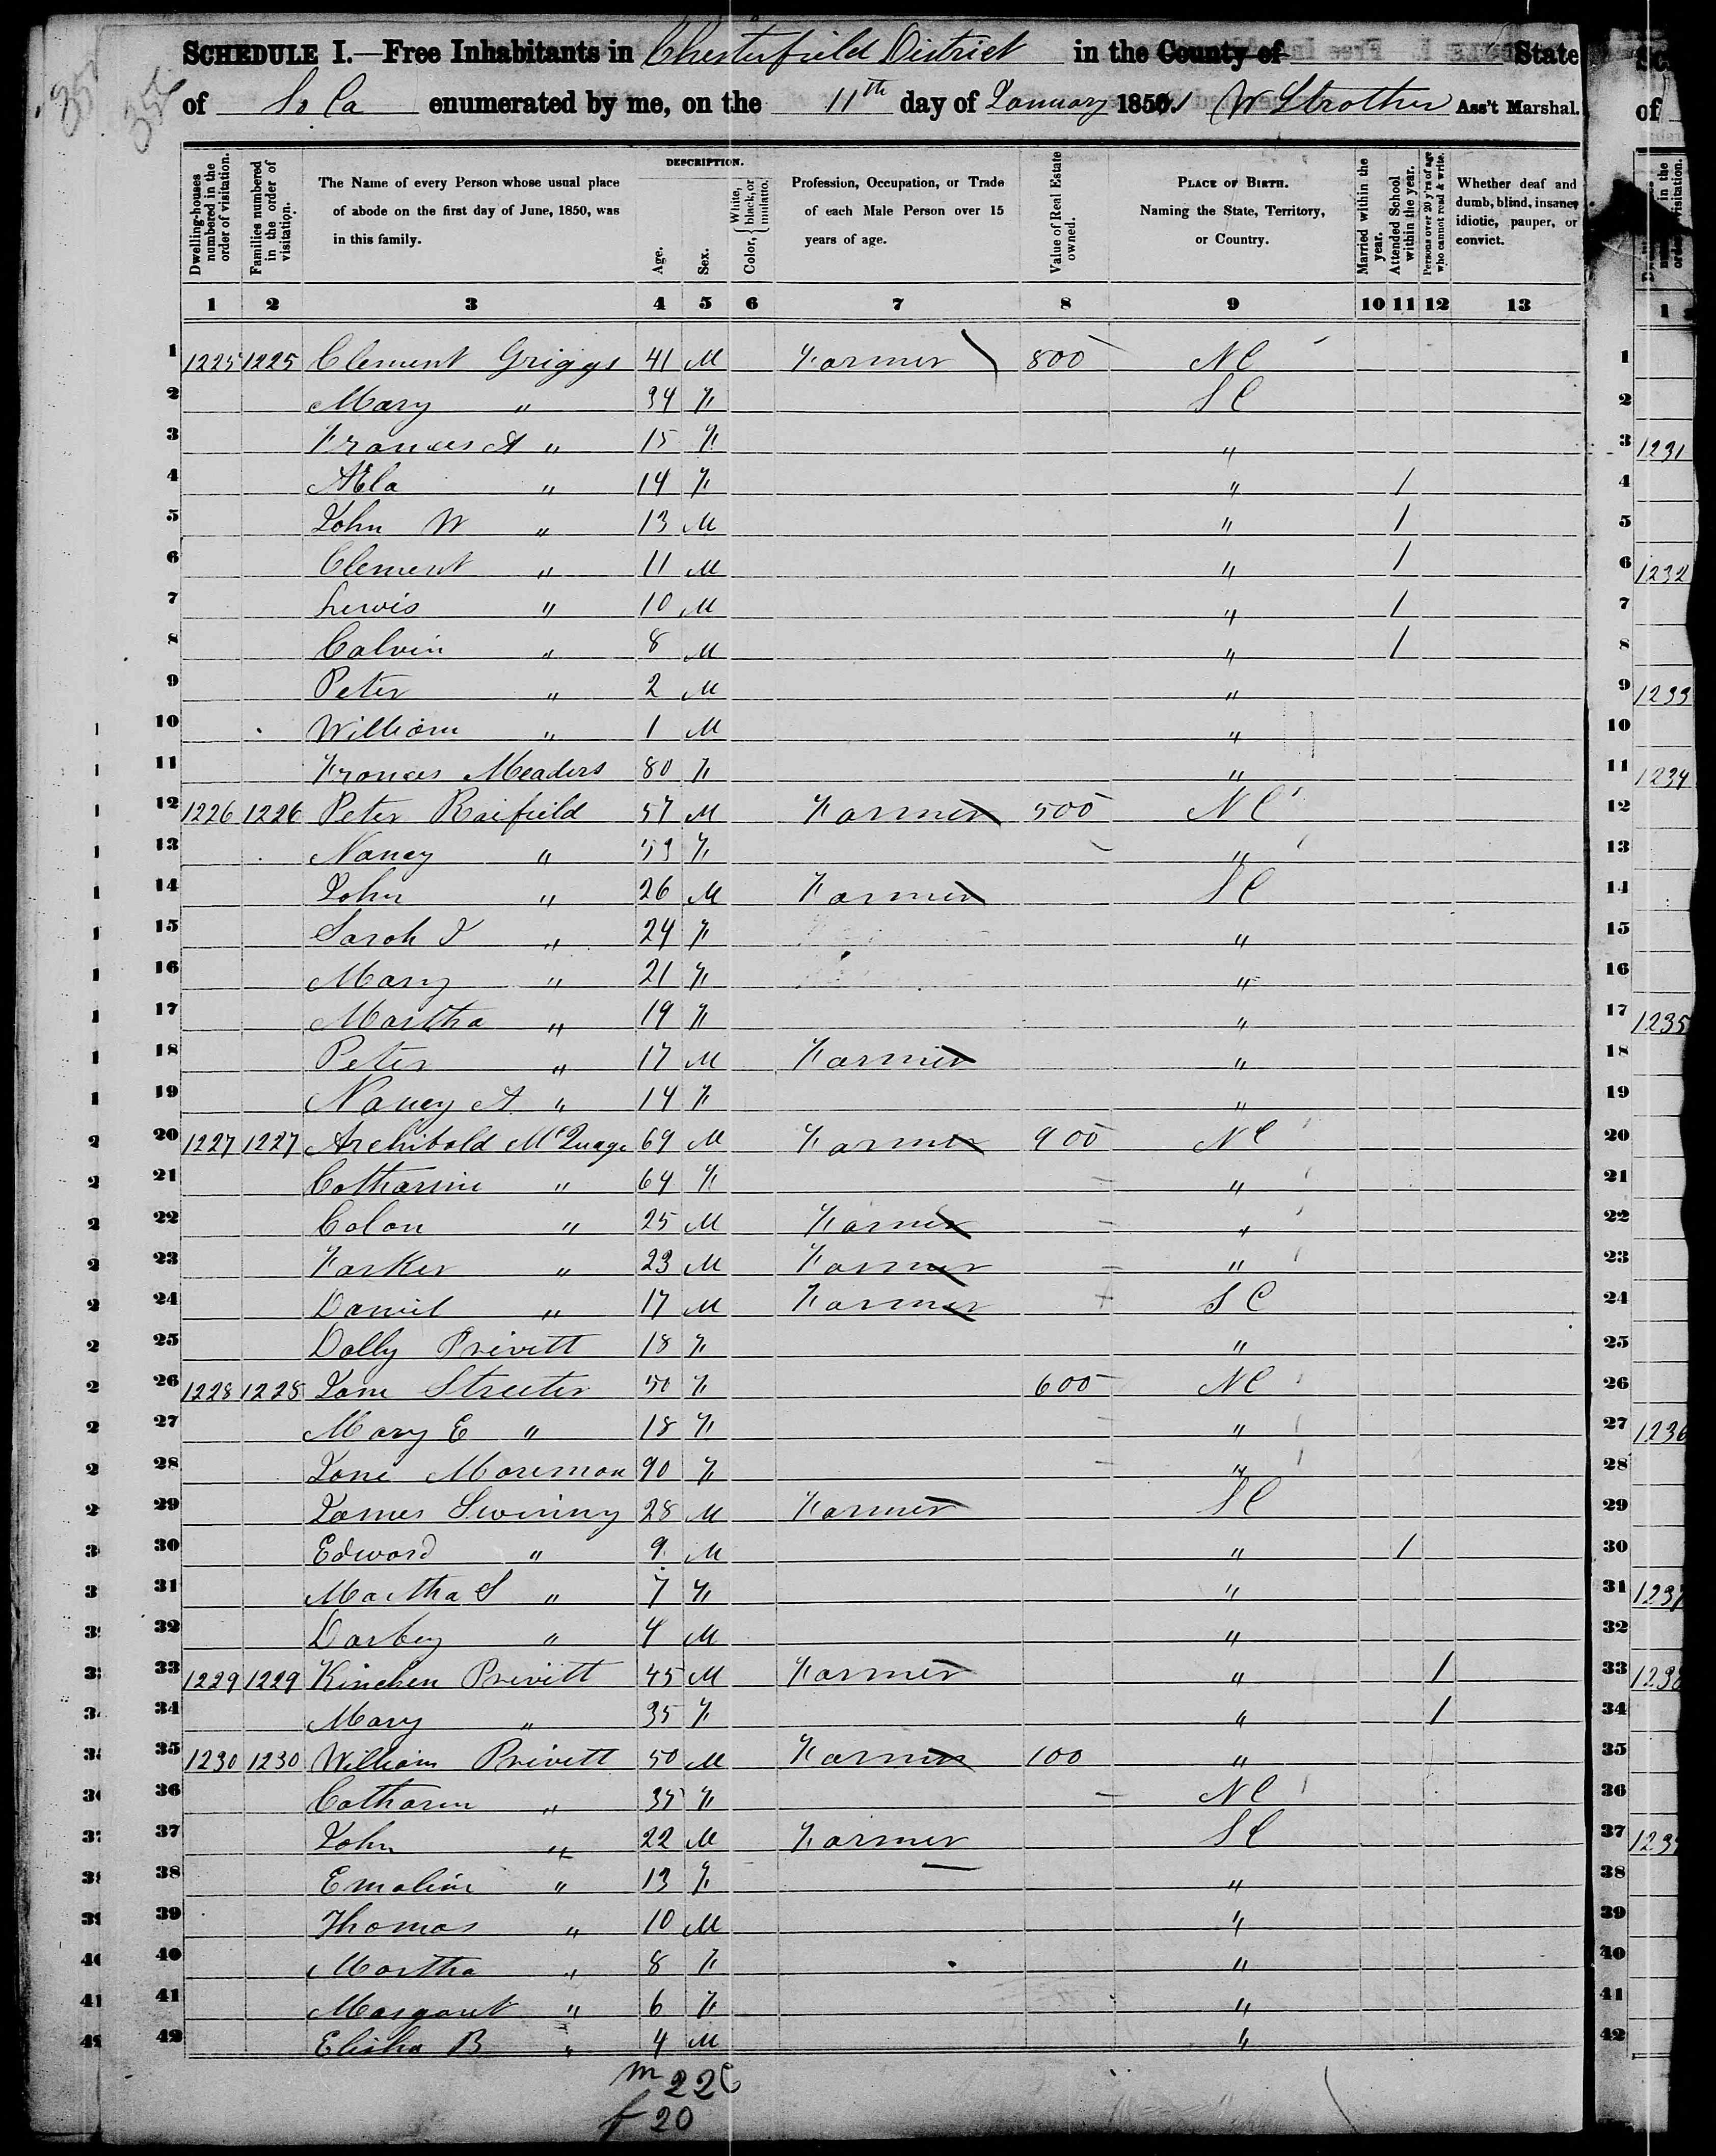 SCHEDULE I.—Free Inhabitants in Chesterfield District in the County of State
of So Ca enumerated by me, on the 11th day of January 1851 W Strother Ass't Marshal.
DESCRIPTION.
Dwelling-houses numbered in the order of visitation.
Families numbered in the order of visitation.
The Name of every Person whose usual place of abode on the first day of June, 1850, was in this family.
Age.
Sex.
Color, { White, black, or mulatto.
Profession, Occupation, or Trade of each Male Person over 15 years of age.
Value of Real Estate owned.
PLACE OF BIRTH. Naming the State, Territory, or Country.
Married within the year.
Attended School within the year.
Persons over 20 y'rs of age who cannot read & write.
Whether deaf and dumb, blind, insane, idiotic, pauper, or convict.
1 2 3 4 5 6 7 8 9 10 11 12 13
1 1225 1225 Clement Griggs 41 M Farmer 800 NC
2 Mary " 34 F SC
3 Frances A " 15 F "
4 " 14 F " 1
5 John W " 13 M " 1
6 Clement " 11 M " 1
7 Lewis " 10 M " 1
8 Calvin " 8 M " 1
9 Peter " 2 M "
10 William " 1 M "
11 Frances Meadors 80 F "
12 1226 1226 Peter Raifield 57 M Farmer 500 NC
13 Nancy " 53 F "
14 John " 26 M Farmer SC
15 Sarah J " 24 F "
16 Mary " 21 F "
17 Martha " 19 F "
18 Peter " 17 M Farmer "
19 Nancy A " 14 F "
20 1227 1227 Archibald McQuage 69 M Farmer 900 NC
21 Catharine " 64 F "
22 Colon " 25 M Farmer "
23 Farker " 23 M Farmer "
24 Daniel " 17 M Farmer SC
25 Dolly Privett 18 F "
26 1228 1228 Jane Streeter 50 F 600 NC
27 Mary E " 18 F "
28 Jane Moreman 90 F "
29 James Swinny 28 M Farmer SC
30 Edward " 9 M " 1
31 Martha S " 7 F "
32 Darbey " 4 M "
33 1229 1229 Kinchen Privett 45 M Farmer " 1
34 Mary " 35 F " 1
35 1230 1230 William Privett 50 M Farmer 100 "
36 Catharin " 35 F NC
37 John " 22 M Farmer SC
38 Emaline " 13 F "
39 Thomas " 10 M "
40 Martha " 8 F "
41 Margaret " 6 F "
42 Elisha B " 4 M "
m 22
f 20
of
1
1231
1232
1233
1234
1235
1236